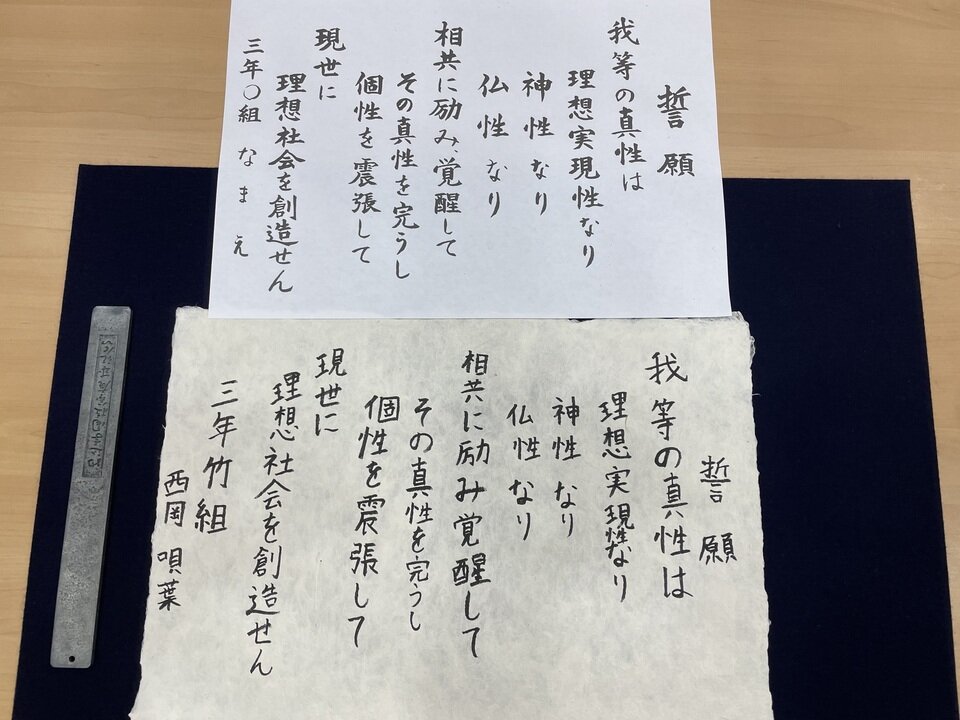 誓願
我等の真性は
理想実現性なり
神性なり
仏性なり
相共に励み、覚醒して
その真性を完うし
個性を震張して
現世に
理想社会を創造せん
三年〇組 なまえ
誓願
我等の真性は
理想実現性なり
神性なり
仏性なり
相共に励み覚醒して
その真性を完うし
個性を震張して
現世に
理想社会を創造せん
三年竹組
西岡 唄葉